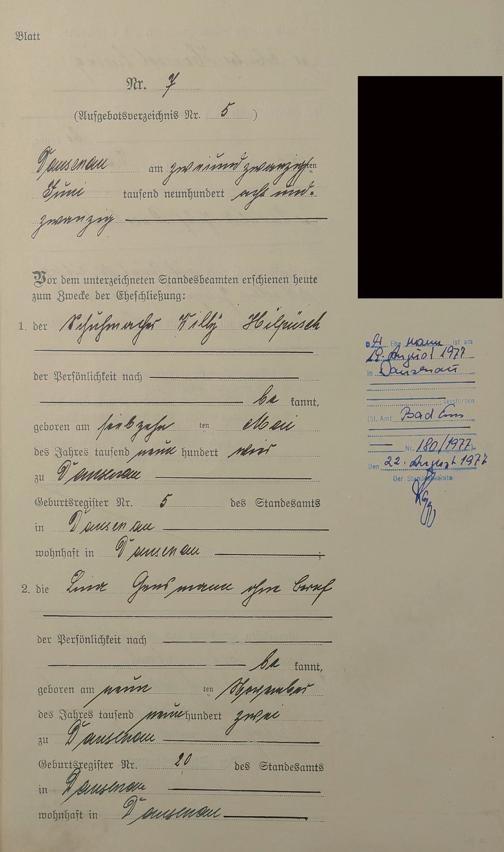 Blatt
Nr. 7
(Aufgebotsverzeichnis Nr. 5 )
Dausenau am zweiundzwanzigsten
Juni tausend neunhundert acht und-
zwanzig
Vor dem unterzeichneten Standesbeamten erschienen heute
zum Zwecke der Eheschließung:
1. der Schuhmacher Willy Hilpüsch
der Persönlichkeit nach
be kannt,
geboren am siebzehn ten Mai
des Jahres tausend neun hundert vier
zu Dausenau
Geburtsregister Nr. 5 des Standesamts
in Dausenau
wohnhaft in Dausenau ;
2. die Lina Gensmann ohne Beruf
der Persönlichkeit nach
be kannt,
geboren am neun ten November
des Jahres tausend neun hundert zwei
zu Dausenau
Geburtsregister Nr. 20 des Standesamts
in Dausenau
wohnhaft in Dausenau
Ehemann ist am
August 1977
in Dausenau
verstorben
(St. Amt Bad Ems
Nr. 180/1977
Den 22. August 1977
Der Standesbeamte